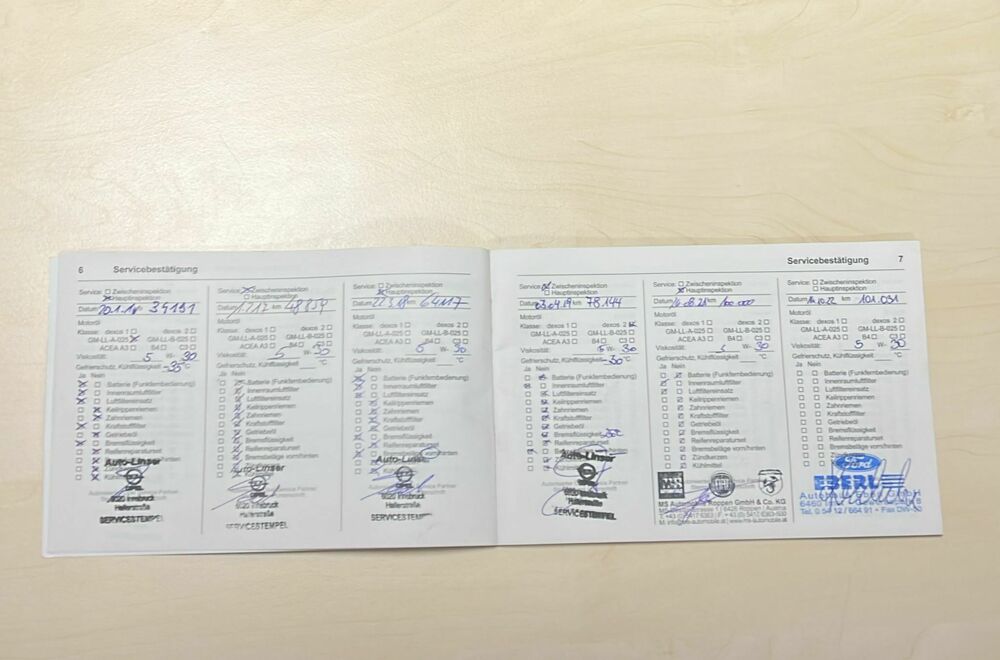 6 Servicebestätigung
Service: Zwischeninspektion
Hauptinspektion
Datum 20.1.18 35151
Motoröl
Klasse: dexos 1 dexos 2
GM-LL-A-025 GM-LL-B-025
ACEA A3 B4 C3
Viskosität: 5 W- 30
Gefrierschutz, Kühlflüssigkeit -35 °C
Ja Nein
Batterie (Funkfernbedienung)
Innenraumluftfilter
Luftfiltereinsatz
Keilrippenriemen
Zahnriemen
Kraftstofffilter
Getriebeöl
Bremsflüssigkeit
Reifenreparaturset
Auto-Linser
OPEL
6020 Innsbruck
Hallerstraße
SERVICESTEMPEL
Service: Zwischeninspektion
Hauptinspektion
Datum km
Klasse: dexos 1 dexos 2
GM-LL-A-025 GM-LL-B-025
ACEA A3 B4 C3
Viskosität: 5 W- 30
Gefrierschutz, Kühlflüssigkeit °C
Ja Nein
Batterie (Funkfernbedienung)
Innenraumluftfilter
Luftfiltereinsatz
Keilrippenriemen
Zahnriemen
Kraftstofffilter
Getriebeöl
Bremsflüssigkeit
Reifenreparaturset
Bremsbeläge vorn/hinten
Auto-Linser
6020 Innsbruck
Hallerstraße
SERVICESTEMPEL
Service: Zwischeninspektion
Hauptinspektion
Datum 64117
Motoröl
Klasse: dexos 1 dexos 2
GM-LL-A-025 GM-LL-B-025
ACEA A3 B4 C3
Viskosität: 5 W- 30
Gefrierschutz, Kühlflüssigkeit °C
Ja Nein
Batterie (Funkfernbedienung)
Innenraumluftfilter
Luftfiltereinsatz
Keilrippenriemen
Zahnriemen
Kraftstofffilter
Getriebeöl
Bremsflüssigkeit
Reifenreparaturset
Auto-Linser
6020 Innsbruck
Hallerstraße
SERVICESTEMPEL
Servicebestätigung 7
Service: Zwischeninspektion
Hauptinspektion
Datum 03.04.19 km 78.144
Motoröl
Klasse: dexos 1 dexos 2
GM-LL-A-025 GM-LL-B-025
ACEA A3 B4 C3
Viskosität: 5 W- 30
Gefrierschutz, Kühlflüssigkeit -30 °C
Ja Nein
Batterie (Funkfernbedienung)
Innenraumluftfilter
Luftfiltereinsatz
Keilrippenriemen
Zahnriemen
Kraftstofffilter
Getriebeöl
Bremsflüssigkeit
Reifenreparaturset
Auto-Linser
6020 Innsbruck
Hallerstraße
SERVICESTEMPEL
Service: Zwischeninspektion
Hauptinspektion
Datum km 100 000
Motoröl
Klasse: dexos 1 dexos 2
GM-LL-A-025 GM-LL-B-025
ACEA A3 B4 C3
Viskosität: 5 W- 30
Gefrierschutz, Kühlflüssigkeit °C
Ja Nein
Batterie (Funkfernbedienung)
Innenraumluftfilter
Luftfiltereinsatz
Keilrippenriemen
Zahnriemen
Kraftstofffilter
Getriebeöl
Bremsflüssigkeit
Reifenreparaturset
Bremsbeläge vorn/hinten
Zündkerzen
Kühlmittel
MS Automobile Roppen GmbH & Co. KG
1 / 6426 Roppen / Austria
M: info@ms-automobile.at | www.ms-automobile.at
Service: Zwischeninspektion
Hauptinspektion
Datum 14.10.22 km 101.031
Motoröl
Klasse: dexos 1 dexos 2
GM-LL-A-025 GM-LL-B-025
ACEA A3 B4 C3
Viskosität: 5 W- 30
Gefrierschutz, Kühlflüssigkeit °C
Ja Nein
Batterie (Funkfernbedienung)
Innenraumluftfilter
Luftfiltereinsatz
Keilrippenriemen
Zahnriemen
Kraftstofffilter
Getriebeöl
Bremsflüssigkeit
Reifenreparaturset
Bremsbeläge vorn/hinten
Ford
EBERL
Tel. 0 54 12 / 664 91 • Fax DW-60